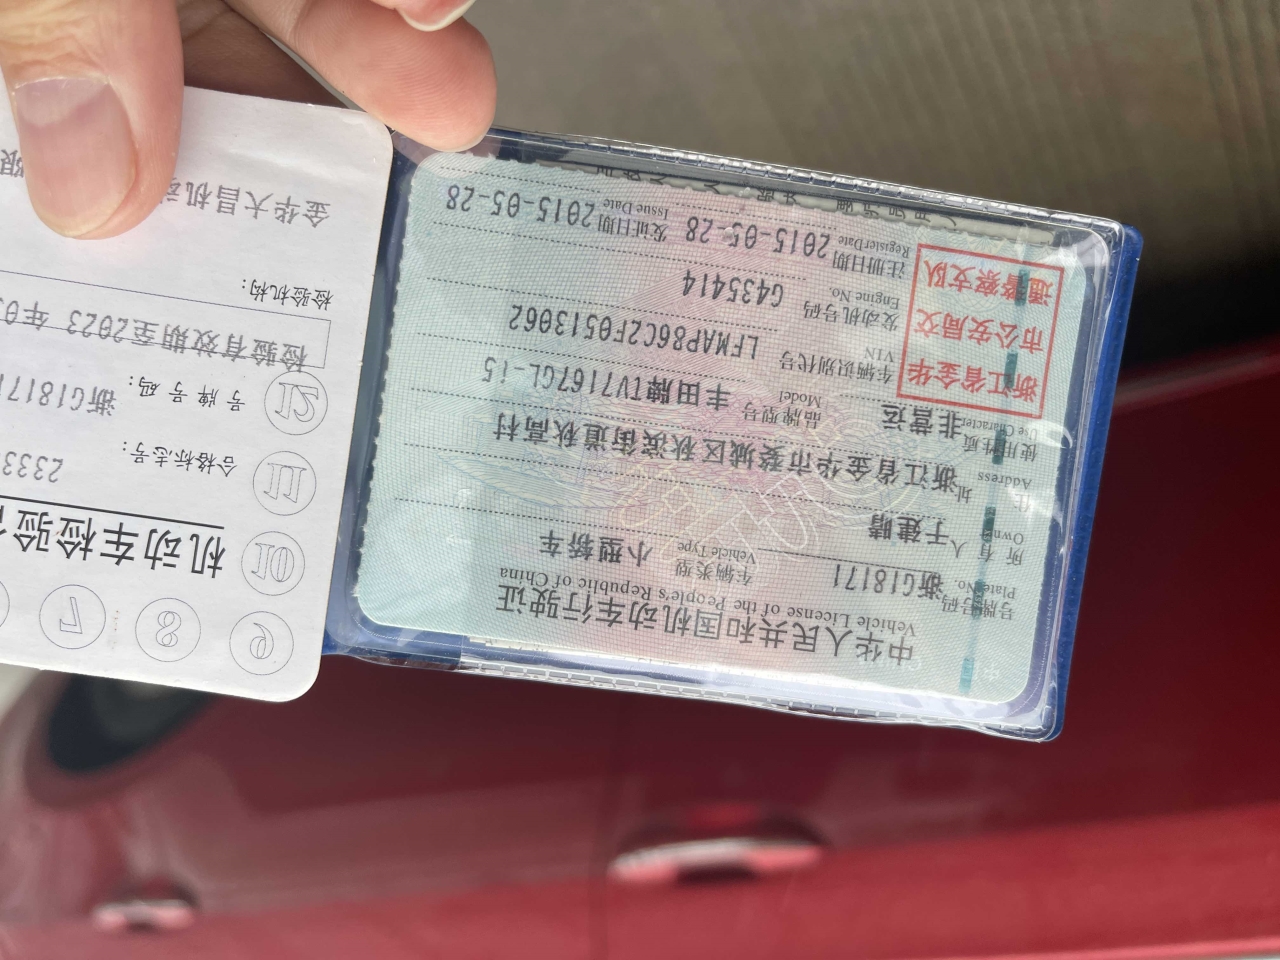 中华人民共和国机动车行驶证
Vehicle License of the People's Republic of China
号牌号码 浙G18171 车辆类型 小型轿车
Plate No. Vehicle Type
所有人 于建晴
Owner
住址 浙江省金华市婺城区秋滨街道秋高村
Address
使用性质 非营运 品牌型号 丰田牌TV7167GL-i5
Use Character Model
浙江省金华
市公安局交
通警察支队
车辆识别代号 LFMAP86C2F0513062
VIN
发动机号码 G435414
Engine No.
注册日期 2015-05-28 发证日期 2015-05-28
Register Date Issue Date
7 8 9
10 机动车检验
合格标志号: 2333
11
号牌号码: 浙G1817
12
检验有效期至2023 年0
检验机构:
金华大昌机动
限